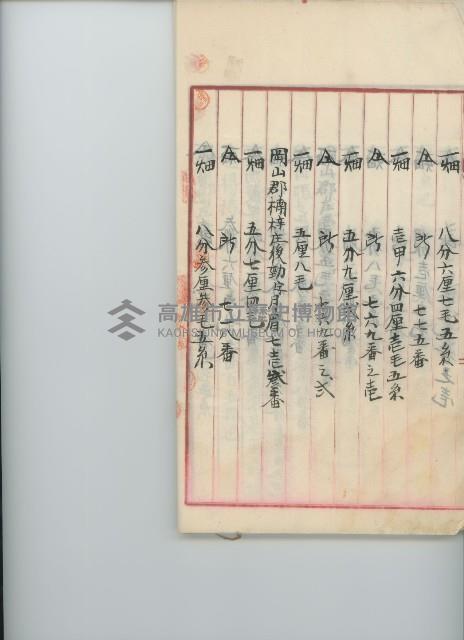 一畑 八分六厘七毛五糸
仝 所 七七五番
一畑 壱甲六分四厘壱毛五糸
仝 所 七六九番之壱
一畑 五分九厘 糸
仝 所 七六九番之弐
一畑 五厘八毛
岡山郡楠梓庄後勁字月眉七壱弐番
一畑 五分七厘四毛
仝 所 七 八番
一畑 八分参厘参 五糸
高雄市立歷史博物館
KAOHSIUNG MUSEUM OF HISTORY